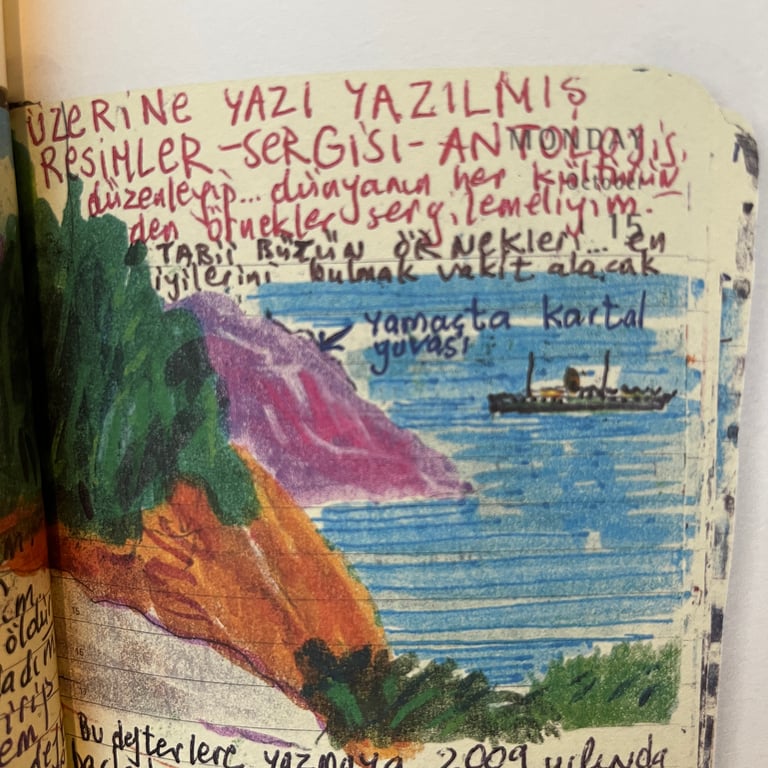 ÜZERİNE YAZI YAZILMIŞ
RESİMLER -SERGİSİ- ANTOLOJİSİ
düzenleyip... dünyanın her kültürün
den örnekler sergilemeliyim.
MONDAY
October
15
TABİİ BÜTÜN ÖRNEKLERİ... en
iyilerini bulmak vakit alacak
yamaçta kartal
yuvası
15
16
17
öldür
Bu defterlere yazmaya 2009 yılında